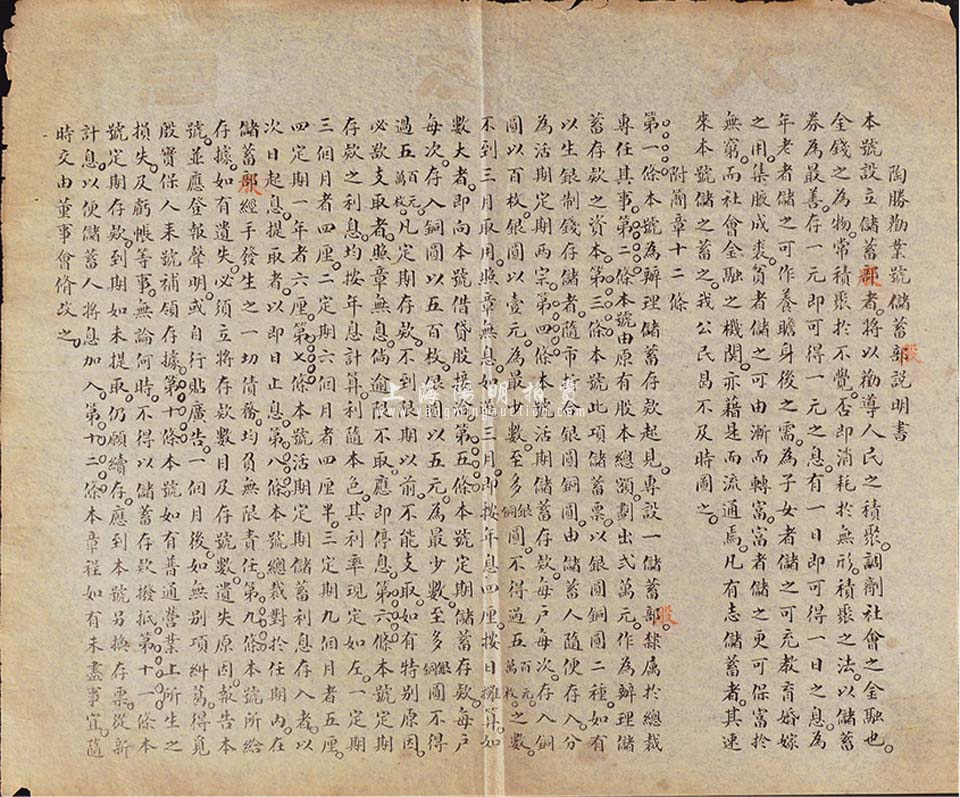 陶勝勸業號儲蓄部説明書
股
本號設立儲蓄部者將以勸導人民之積聚調劑社會之金融也
金錢之為物常積聚於不覺否即消耗於無形積聚之法以儲蓄
券為最善存一元即可得一元之息有一日即可得一日之息為
年老者儲之可作養贍身後之需為子女者儲之可充教育婚嫁
之用集腋成裘貧者儲之可由漸而轉富富者儲之更可保富於
無窮而社會金融之機関亦藉是而流通焉凡有志儲蓄者其速
來本號儲之蓄之我公民曷不及時圖之
附簡章十二條
第一條本號為辦理儲蓄存欵起見專設一儲蓄部隸属於總裁
股
專任其事第二條本號由原有股本總額劃出弍萬元作為辦理儲
蓄存欵之資本第三條本號此項儲蓄票以銀圓銅圓二種如有
以生銀制錢存儲者隨市折合銀圓銅圓由儲蓄人隨便存入分
為活期定期兩宗第四條本號活期儲蓄存欵每戶每次存入銅
圓以百枚銀圓以壹元為最少數至多銀銅圓不得過五百元萬枚之數
不到三月取用照章無息如滿三月即按年息四厘按日攤算如
數大者即向本號借貸股接洽第五條本號定期儲蓄存欵每戶
每次存入銅圓以五百枚銀圓以五元為最少數至多銀銅圓不得
過五百元萬枚凡定期存欵不到限期以前不能支取如有特别原因
必欲支取者照章無息倘逾限不取應即停息第六條本號定期
存欵之利息均按年息計算利隨本色其利率現定如左一定期
三個月者四厘二定期六個月者四厘半三定期九個月者五厘
四定期一年者六厘第七條本號活期定期儲蓄利息存入者以
次日起息提取者以即日止息第八條本號總裁對於任期内在
儲蓄部經手發生之一切債務均負無限責任第九條本號所給
股
存據如有遺失必須立將存欵數目及存號數遺失原因報告本
號並應登報聲明或自行貼廣告一個月後如無别項糾葛得覓
殷實保人来號補領存據第十條本號如有普通營業上所生之
損失及虧帳等事無論何時不得以儲蓄存欵撥抵第十一條本
號定期存欵到期如未提取仍願續存應到本號另換存票從新
計息以便儲蓄人將息加入第十二條本章程如有未盡事宜隨
時交由董事會脩改之
上海陽明拍賣